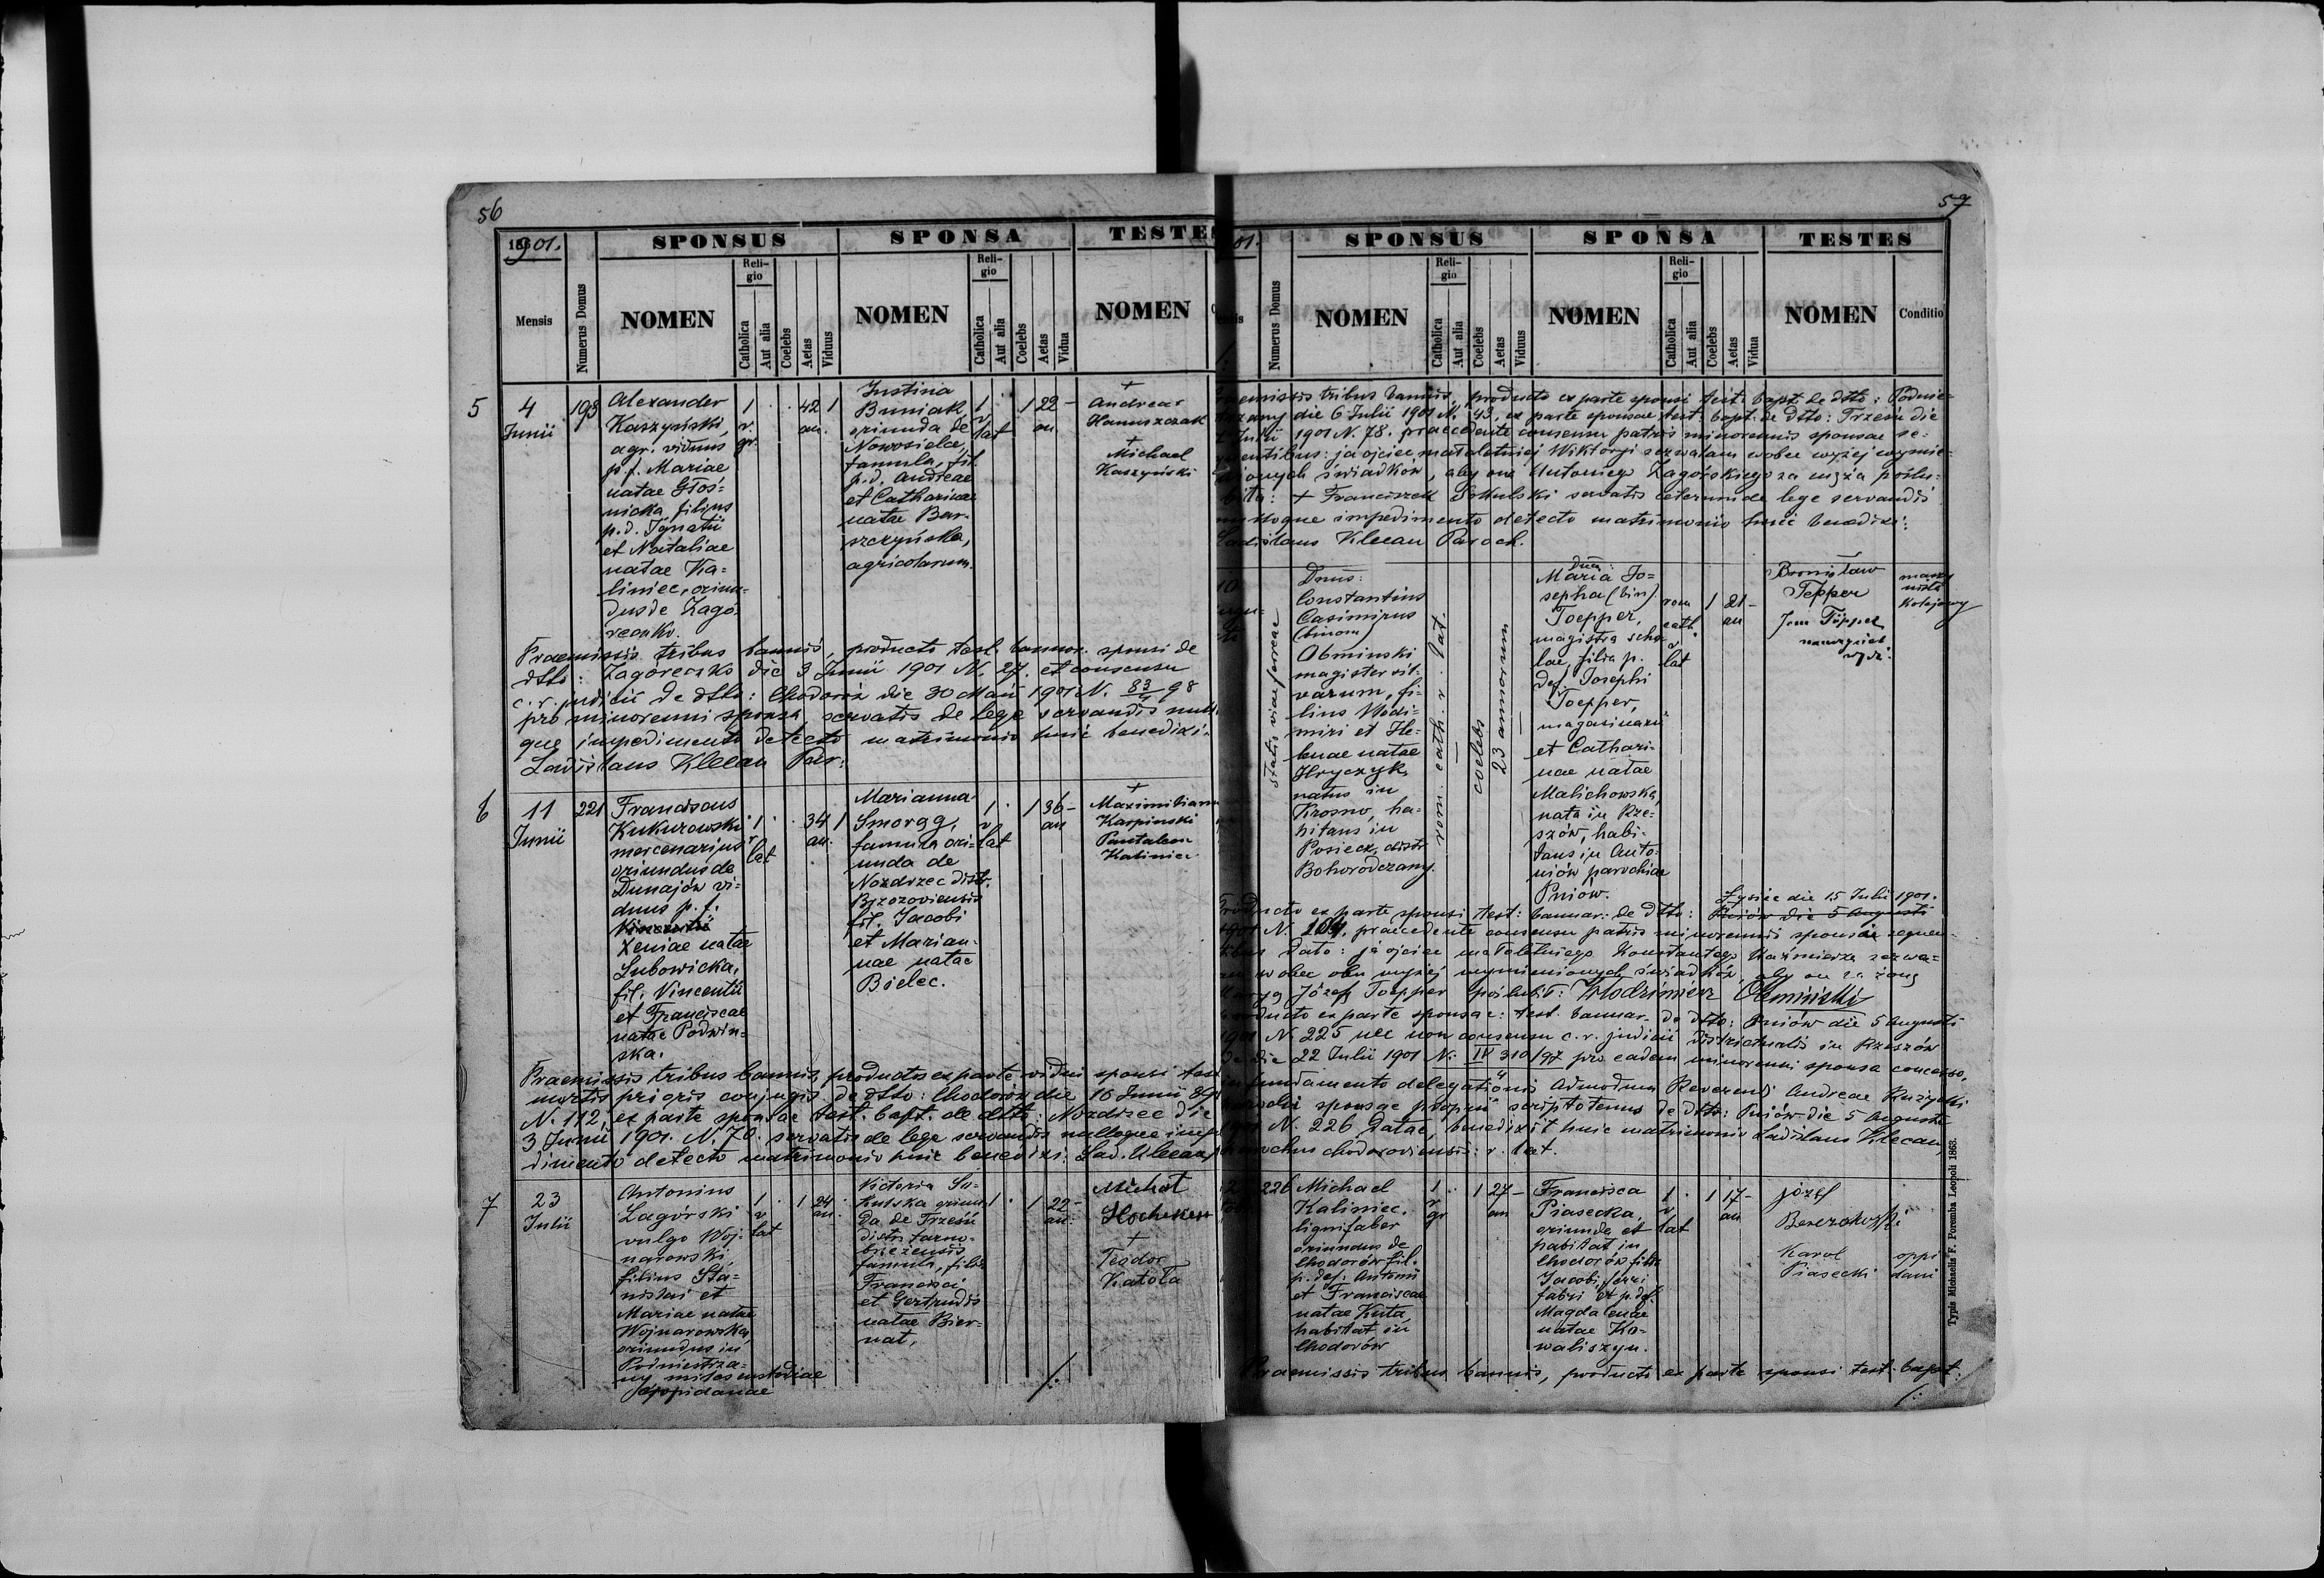 56
1901.
SPONSUS
SPONSA
TESTES
Mensis
Numerus Domus
NOMEN
Religio
Catholica
Aut alia
Coelebs
Aetas
Viduus
NOMEN
Religio
Catholica
Aut alia
Coelebs
Aetas
Vidua
NOMEN
5
4
Junii
193
Alexander
Kaszyński,
agr. viduus
p. f. Mariae
natae Głoś=
nicka filius
p. d. Ignatii
et Nataliae
natae Ka=
liniec, oriun=
dus de Zago=
reczko.
1
r.
gr.
42
an.
1
Justina
Buniak
oriunda de
Nowosielce,
famula, fil.
p. d. Andreae
et Catharinae
natae Bar=
szczyńska,
agricolarum.
1
r.
lat
1
22
an.
+
Andreas
Hanuszczak
+
Michael
Kaszyński
Praemissis tribus bannis, producto test. bannor. sponsi de
dtto: Zagoreczko die 3 Junii 1901 N. 27. et consensu
c. r. judicii de dtto: Chodorów die 30 Maii 1901 N. 83/4 98
pro minorenni sponsa, servatis de lege servandis nullo
que impedimento detecto matrimonio huic benedixi.
Ladislaus Klecan Par:
6
11
Junii
221
Franciscus
Kukurowski
mercenarius
oriundus de
Dunajów vi=
duus p. f.
Xeniae natae
Lubowicka,
fil. Vincentii
et Franciscae
natae Podwin=
ska.
1
r.
lat
34
an.
1
Marianna
Smorąg,
famula ori=
unda de
Nozdrzec distr.
Brzozoviensis
fil. Jacobi
et Marian=
nae natae
Bielec.
1
r.
lat
1
36
an
+
Maximilian
Karpinski
Pantaleon
Kaliniec
Praemissis tribus bannis, productis ex parte vidui sponsi test
mortis prioris conjugis de dtto: Chodorów die 16 Junii 89
N. 112, ex parte sponsae test. bapt. de dtto: Nozdrzec die
3 Junii 1901. N. 70. servatis de lege servandis nulloque impe
dimento detecto matrimonio huic benedixi: Lad. Klecan
7
23
Julii
Antonius
Zagórski
vulgo Woj=
narowski,
filius Sta=
nislai et
Mariae natae
Wojnarowska,
oriundus in
Podniestrza=
ny miles custodiae
oppidanae
1
r
lat
1
24
an.
Victoria So=
kulska oriun=
da de Trześń
distr. tarno=
brzezensis
famula, filia
Francisci
et Gertrudis
natae Bier=
nat.
1
1
22
an.
Michał
+
Teodor
Katola
57
1901.
SPONSUS
SPONSA
TESTES
Mensis
Numerus Domus
NOMEN
Religio
Catholica
Aut alia
Coelebs
Aetas
Viduus
NOMEN
Religio
Catholica
Aut alia
Coelebs
Aetas
Vidua
NOMEN
Conditio
Praemissis tribus bannis, producto ex parte sponsi test. bapt. de dtto: Podnie=
strzany die 6 Julii 1901 N. 43. ex parte sponsae test. bapt. de dtto: Trześń die
Julii 1901 N. 78. praecedente consensu patris minorennis sponsae se=
quentibus: ja ojciec małoletniej Wiktoryi zezwalam wobec wyżej wymie=
nionych świadków, aby ona Antoniego Zagórskiego za męża poślu=
biła: + Franciszek Sokulski servatis ceterum de lege servandis
nulloque impedimento detecto matrimonio huic benedixi:
Ladislaus Klecan Paroch.
10
statio viae ferreae
Dnus:
Constantinus
Casimirus
(binom)
Abminski
magister sil=
varum, fi=
lius Wlodi=
miri et He=
lenae natae
Hryczyk,
natus in
Krosno, ha=
bitans in
Posiecz, distr.
Bohorodczany.
rom. cath. r. lat.
coelebs
23 annorum
Dna:
Maria Jo=
sepha (bin)
Toepper,
magistra scho=
lae, filia p.
def. Josephi
Toepper,
magasinarii
et Cathari=
nae natae
Malichowska,
nata in Rze=
szów, habi=
tans in Anto=
niów parochiae
Pniów.
rom
cath.
r.
lat
1
21
an
Bronisław
Tepper
Jan Töpper
maszy
nista
kolejowy
Łysiec die 15 Julii 1901.
Producto ex parte sponsi test: bannor: de dtto: Pniów die 5 Augusti
1901 N. 104, praecedente consensu patris minorennis sponsi sequen=
tibus dato: ja ojciec małoletniego Konstantego Kazimierza zezwa=
lam wobec obu wyżej wymienionych świadków, aby on za żonę
Maryę Józefę Toepper poślubił: Włodzimierz Obmiński
Producto ex parte sponsae: test. bannor. de dtto: Pniów die 5 Augusti
1901 N. 225 nec non consensu c. r. judicii districtualis in Rzeszów
de die 22 Julii 1901 N. IV 310/97 4 pro eadem minorenni sponsa concesso,
in fundamento delegationis Admodum Reverendi Andreae Ruzycki
parochi sponsae proprii scriptotenus de dtto: Pniów die 5 Augusti
1901 N. 226 datae, benedixit huic matrimonio Ladislaus Klecan,
parochus chodoroviensis r. lat.
226
Michael
Kaliniec.
lignifaber
oriundus de
Chodorów fil.
p. def. Antonii
et Franciscae
natae Kuta,
habitat in
Chodorów
1
r
gr
1
27
an
Francisca
Piasecka,
oriunda et
habitat in
Chodorów filia
Jacobi, ferri
fabri et p. def.
Magdalenae
natae Ko=
waliszyn.
1
r.
lat
1
17
an
Józef
Karol
Piasecki
oppi
dani
Praemissis tribus bannis, producto ex parte sponsi test. bapt.
Typis Michaelis F. Poremba Leopoli 1868.